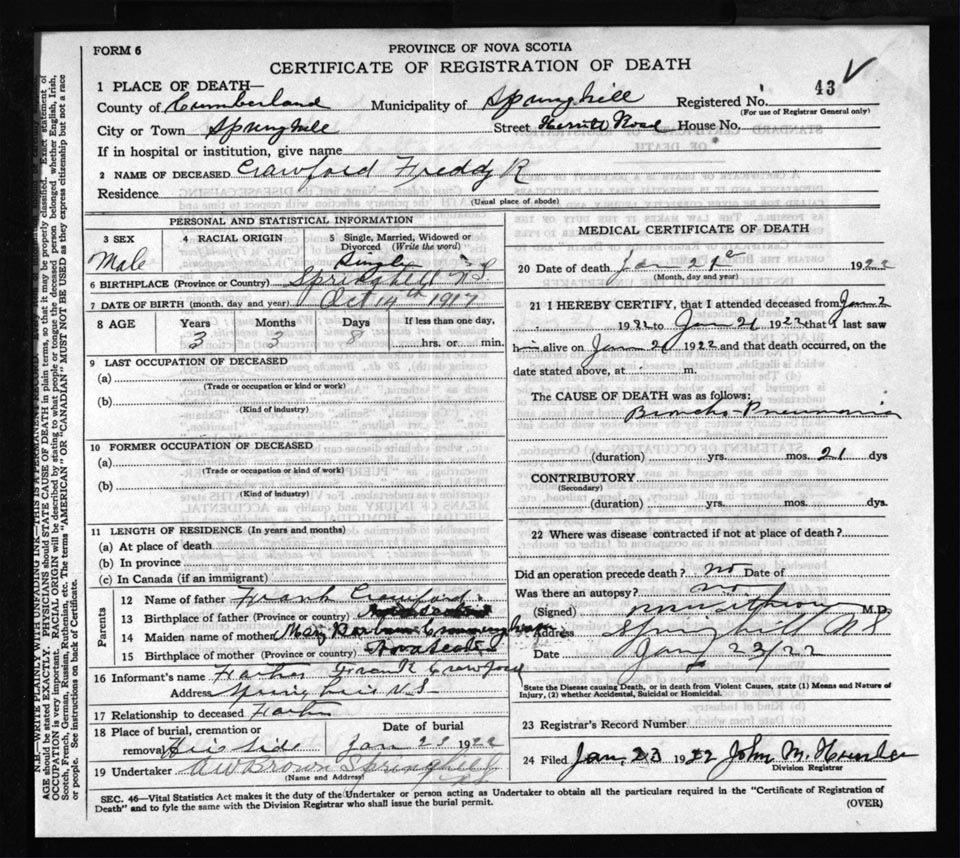 FORM 6
PROVINCE OF NOVA SCOTIA
CERTIFICATE OF REGISTRATION OF DEATH
43
1 PLACE OF DEATH—
County of Cumberland Municipality of Springhill Registered No.
(For use of Registrar General only)
City or Town Springhill Street Herrett Road House No.
If in hospital or institution, give name
2 NAME OF DECEASED Crawford Freddy R
Residence
(Usual place of abode)
PERSONAL AND STATISTICAL INFORMATION
3 SEX
Male
4 RACIAL ORIGIN
5 Single, Married, Widowed or Divorced (Write the word)
Single
6 BIRTHPLACE (Province or Country) Springhill N S
7 DATE OF BIRTH (month, day and year) Oct 14th 1917
8 AGE Years Months Days If less than one day,
3 3 8 hrs. or min.
9 LAST OCCUPATION OF DECEASED
(a)
(Trade or occupation or kind or work)
(b)
(Kind of industry)
10 FORMER OCCUPATION OF DECEASED
(a)
(Trade or occupation or kind of work)
(b)
(Kind of industry)
11 LENGTH OF RESIDENCE (In years and months)
(a) At place of death
(b) In province
(c) In Canada (if an immigrant)
Parents
12 Name of father Frank Crawford
13 Birthplace of father (Province or country) Nova Scotia
14 Maiden name of mother Mary Barbara Cunningham
15 Birthplace of mother (Province or country) Nova Scotia
16 Informant's name Father Crawford
Address Springhill N.S.
17 Relationship to deceased Father
18 Place of burial, cremation or removal Hillside
Date of burial
Jan 23 1922
19 Undertaker A W Brown Springhill
(Name and Address)
MEDICAL CERTIFICATE OF DEATH
20 Date of death Jan 21st 1922
(Month, day and year)
21 I HEREBY CERTIFY, that I attended deceased from Jan 2
1921 to Jan 21 1922 that I last saw
him alive on Jan 21 1922 and that death occurred, on the
date stated above, at m.
The CAUSE OF DEATH was as follows:
Broncho-Pneumonia
(duration) yrs. mos. 21 dys
CONTRIBUTORY
(Secondary)
(duration) yrs. mos. dys.
22 Where was disease contracted if not at place of death?
Did an operation precede death? no Date of
Was there an autopsy? no
(Signed) M.D.
Address Springhill NS
Date Jany 23/22
State the Disease causing Death, or in death from Violent Causes, state (1) Means and Nature of Injury, (2) whether Accidental, Suicidal or Homicidal.
23 Registrar's Record Number
24 Filed Jan. 23 1922 John M. Hunter
Division Registrar
SEC. 46—Vital Statistics Act makes it the duty of the Undertaker or person acting as Undertaker to obtain all the particulars required in the "Certificate of Registration of
Death" and to fyle the same with the Division Registrar who shall issue the burial permit.
(OVER)
N.B.—WRITE PLAINLY WITH UNFADING INK—THIS IS A PERMANENT RECORD.
AGE should be stated EXACTLY. PHYSICIANS should STATE CAUSE OF DEATH in plain terms, so that it may be properly classified. Exact statement of
OCCUPATION is very important. RACIAL ORIGIN will be described by stating to what people or tongue the deceased person belonged whether English, Irish,
Scotch, French, German, Russian, Ruthenian, etc. The terms "AMERICAN" OR "CANADIAN" MUST NOT BE USED as they express citizenship but not a race
of people. See instructions on back of Certificate.